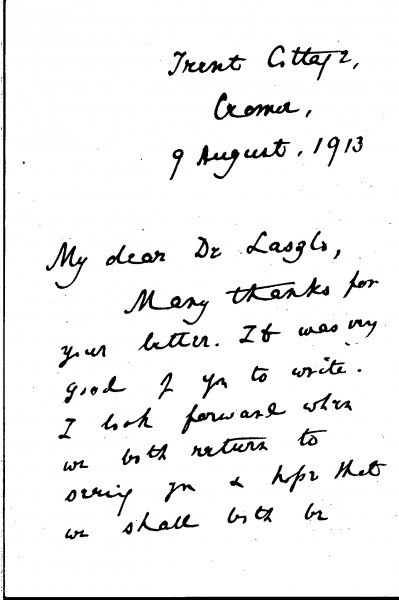 Trent Cottage,
Cromer,
9 August. 1913
My dear De Laszlo,
Many thanks for
your letter. It was very
good of you to write.
I look forward when
we both return to
seeing you & hope that
we shall both be